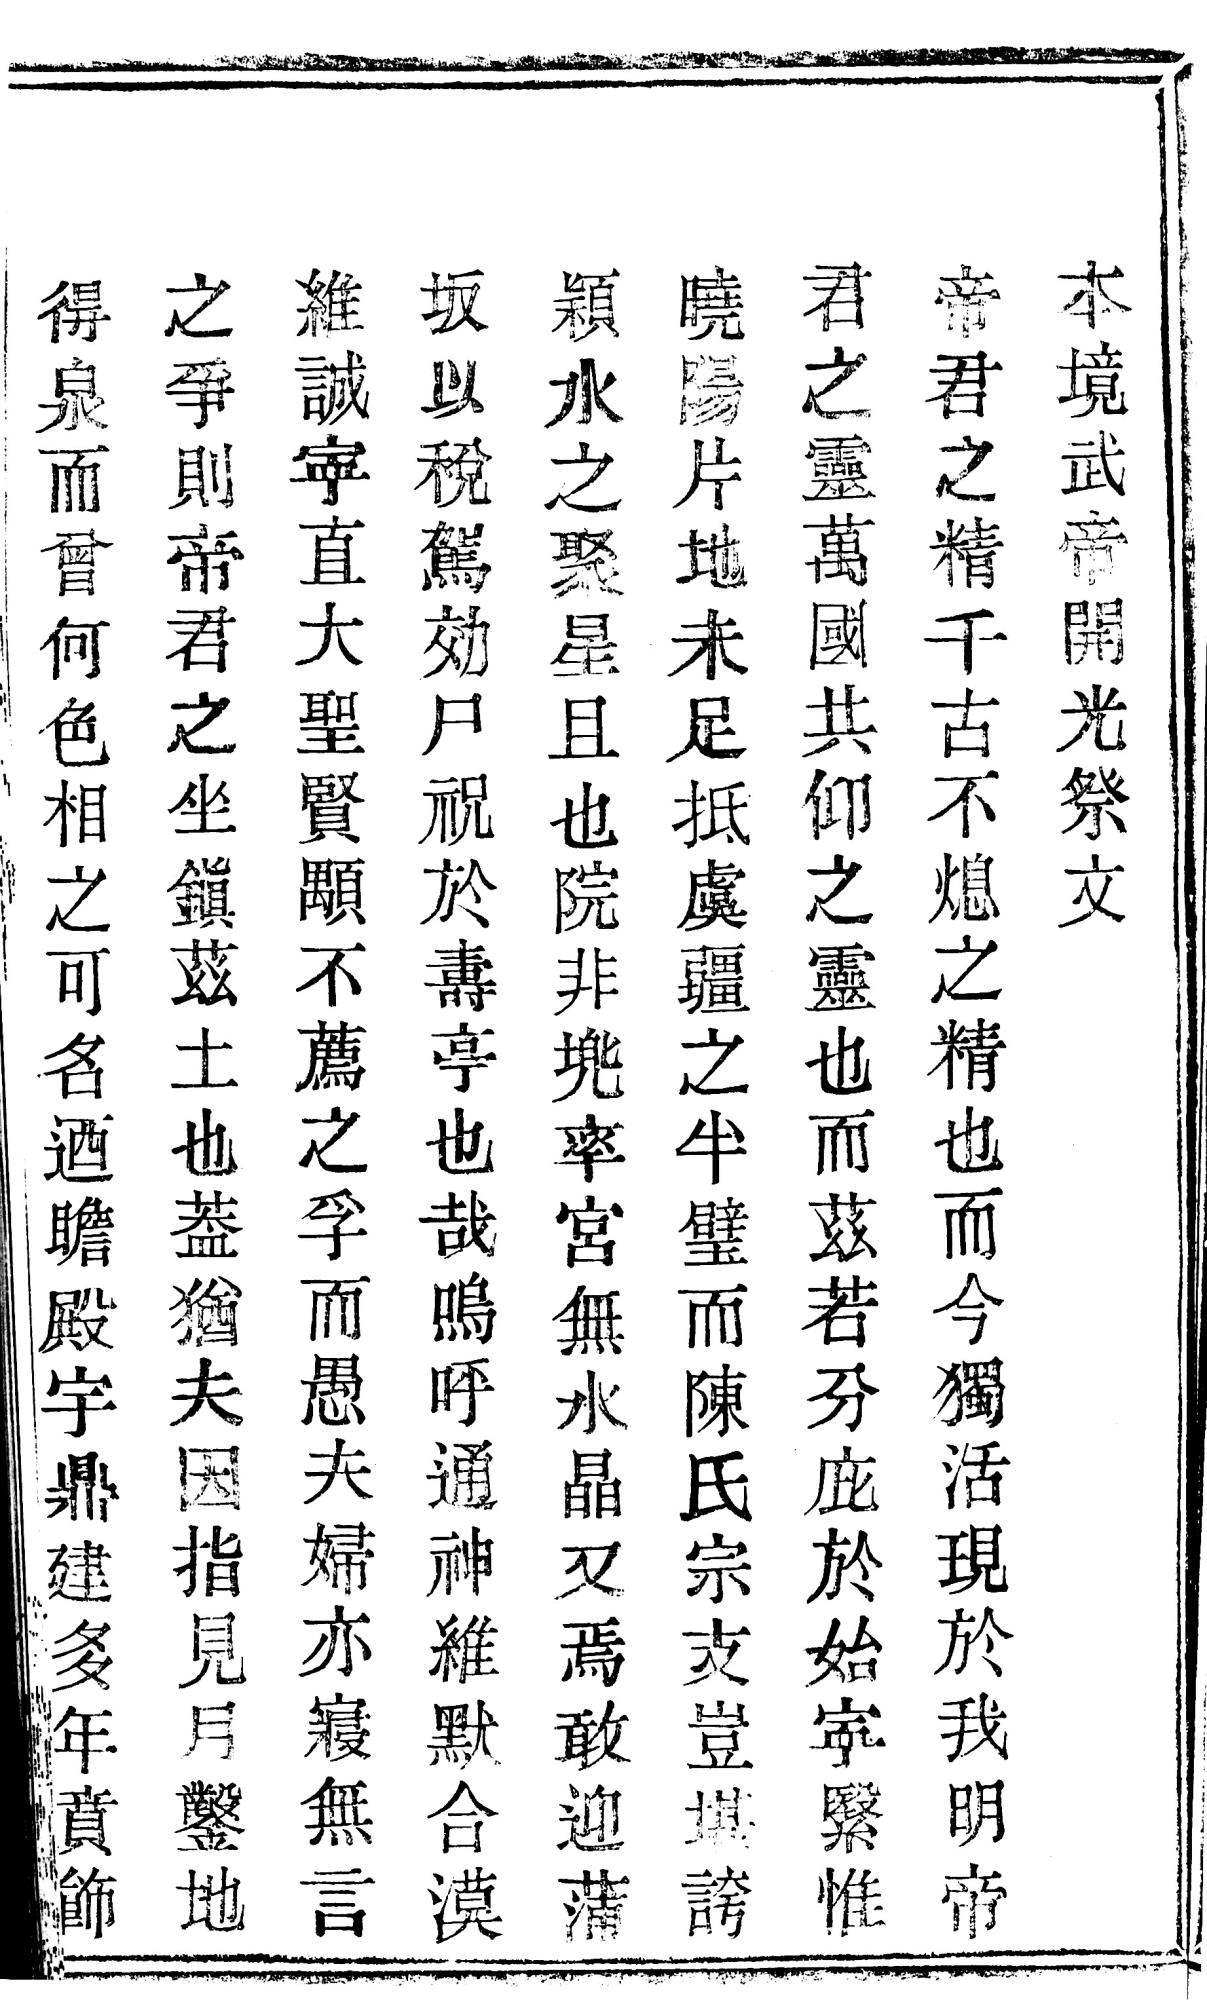 本境武帝開光祭文
帝君之精千古不熄之精也而今獨活現於我明帝
君之靈萬國共仰之靈也而茲若分庇於始寧繄惟
曉陽片地未足抵虞疆之半璧而陳氏宗支豈堪誇
潁水之聚星且也院非堍率宮無水晶又焉敢迎蒲
坂以稅駕効尸祝於壽亭也哉嗚呼通神維默合漠
維誠寧直大聖賢顒不薦之孚而愚夫婦亦寢無言
之爭則帝君之坐鎮茲土也葢猶夫因指見月鑿地
得泉而曾何色相之可名迺瞻殿宇鼎建多年賁飾